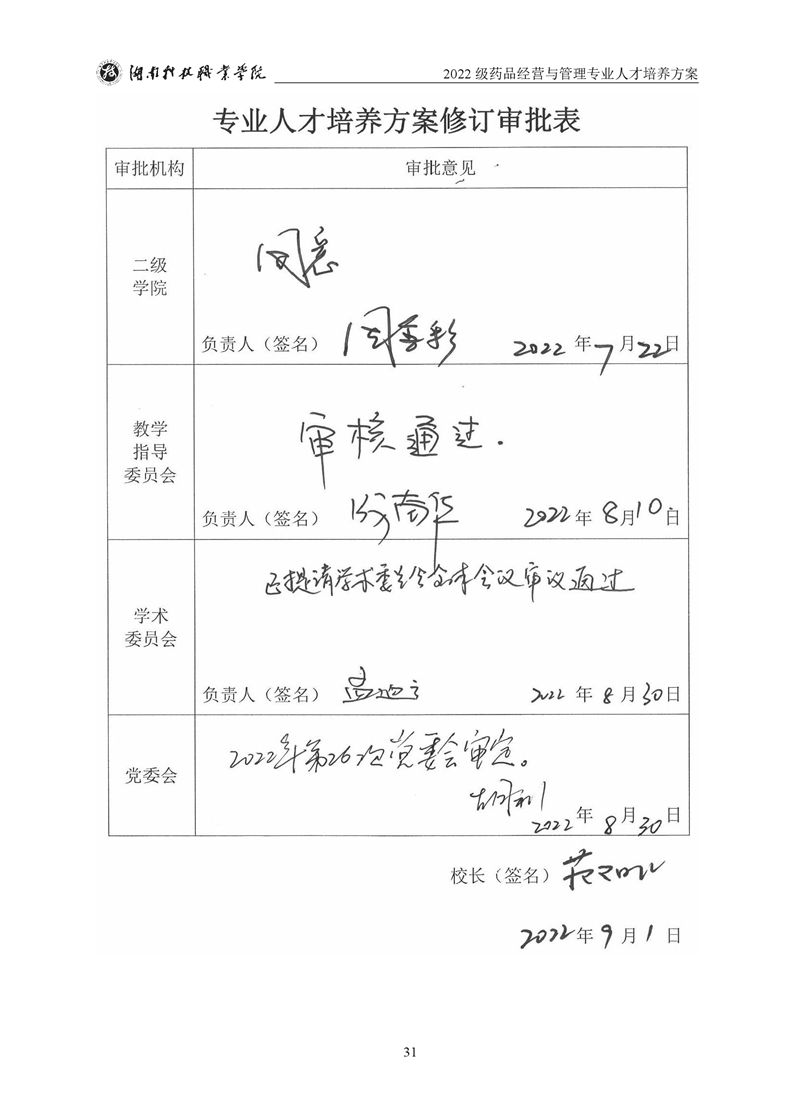 湖南科技职业学院
2022 级药品经营与管理专业人才培养方案
专业人才培养方案修订审批表
审批机构
审批意见
二级
学院
同意
负责人（签名）
2022 年 7 月 22 日
教学
指导
委员会
审核通过.
负责人（签名）
2022 年 8 月 10 日
学术
委员会
已提请学术委员会全体会议审议通过
负责人（签名）
2022 年 8 月 30 日
党委会
2022年第26次党委会审定。
2022 年 8 月 30 日
校长（签名）
2022 年 9 月 1 日
31